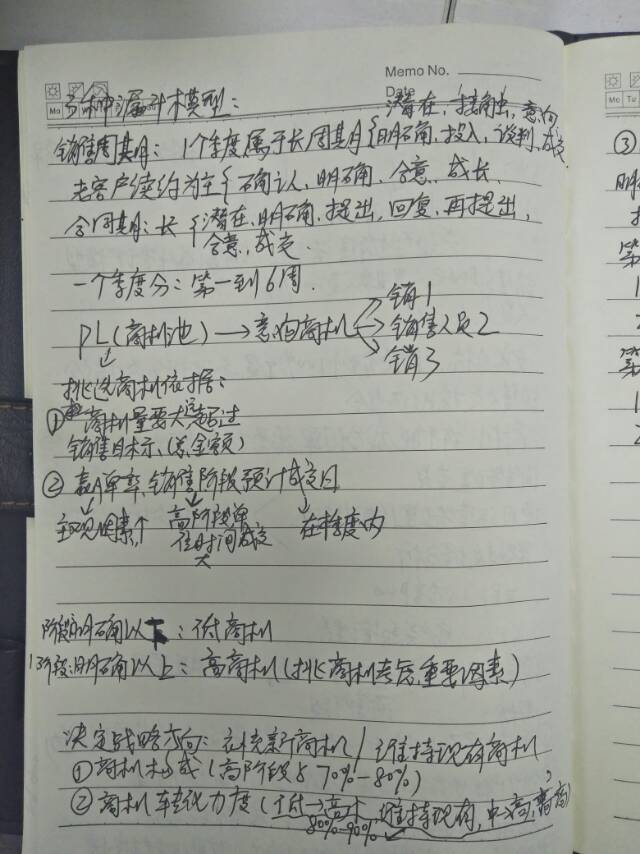 Memo No.
Date
Mo Tu
多种漏斗模型：
潜在，接触，意向，
销售周期：1个季度属于长周期{明确，投入，谈判，成交
老客户续约为主{确认，明确，合意，成长
合周期：长{潜在，明确，提出，回复，再提出，
合意，成交．
一个季度分：第一到6周．
PL(商机池)→意向商机
销1
销售人员2
销3
挑选商机依据：
①商机量要大远超过
销售目标，(总金额)
②赢单率，销售阶段，预计成交日
主观因素，↑
高阶段单
位时间成交
大
在本季度内
阶段明确以下：低商机
阶段：明确以上：高商机(挑商机考虑重要因素)
决定战略方向：补充新商机/维持现有商机
①商机构成(高阶段占70%-80%)
②商机转化力度(低→高，维持现有，中→高，高)
80%-90%
③
明
第
1
2
第
1
2